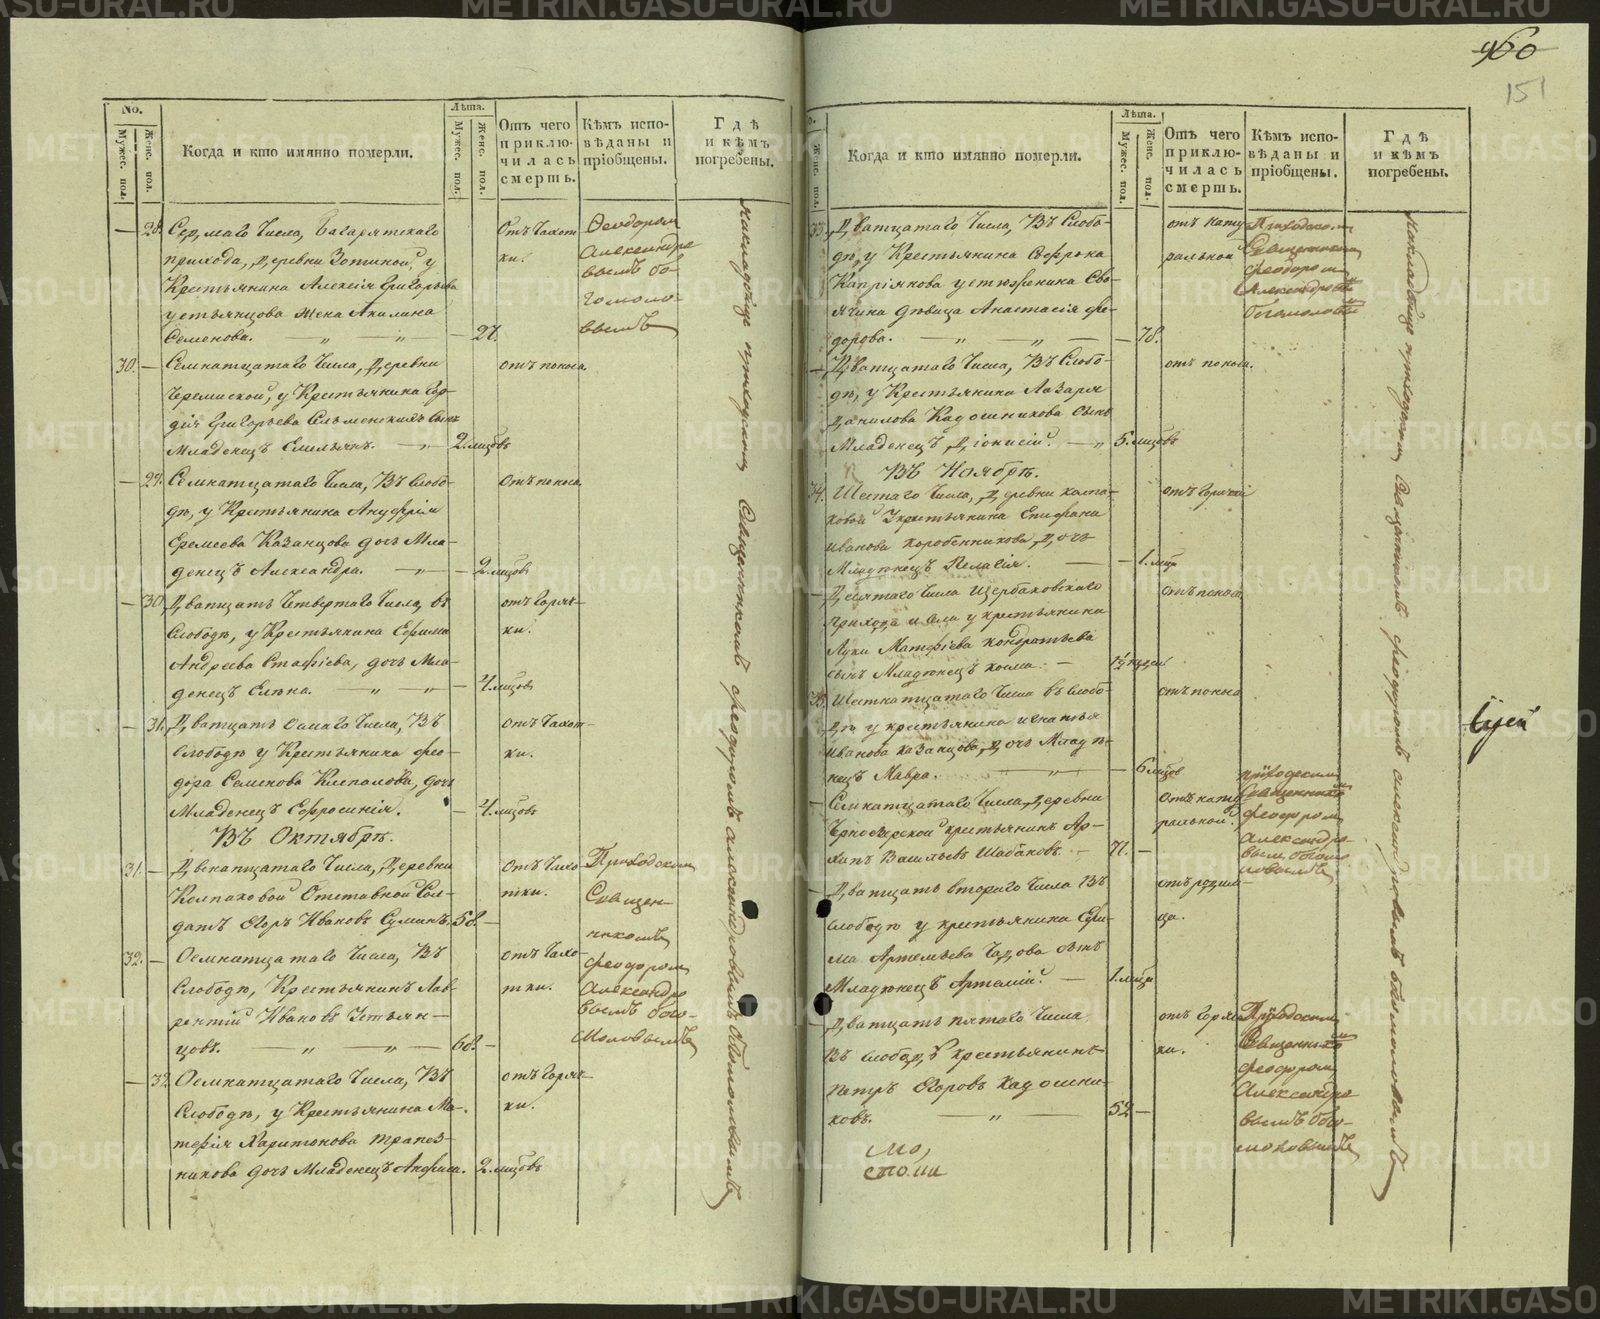 960
151
No.
Мужес. пол.
Женс. пол.
Когда и кто имянно померли.
Лѣта.
Мужес. пол.
Женс. пол.
Отъ чего приклю-чилась смерть.
Кѣмъ испо-вѣданы и пріобщены.
Гдѣ и кѣмъ погребены.
— 28. Седмаго Числа, Багарятскаго
прихода, Деревни Зотиной, у
Крестьянина Алексѣя Григорьева
устьянцова жена Акилина
Семенова. — 27.
Отъ Чахот
ки.
Феодоромъ
Александро
вымъ бо-
гомоло-
вымъ
30. — Семнатцатаго Числа, Деревни
Черемиской, у Крестьянина
Григорьева сынъ
Младенецъ Емельянъ. — 2. мцовъ
отъ поноса.
— 29. Семнатцатаго Числа, Въ Слобо-
дѣ, у Крестьянина Ануфрія
Еремеева Казанцова дочь Мла-
денецъ Александра. — 2. мцовъ
отъ поноса.
— 30. Дватцать Четвертаго Числа, въ
Слободѣ, у Крестьянина Ефима
Андреева Стафіева, дочь Мла-
денецъ Елена. — 4. мцовъ
отъ горяч-
ки.
— 31. Дватцать Осмаго Числа, Въ
Слободѣ у Крестьянина Фео-
дора Семенова Клепалова, дочь
Младенецъ Ефросинія. — 4. мцовъ
отъ Чахот-
ки.
Въ Октябрѣ.
31. — Двенатцатаго Числа, Деревни
Колпаковой Отставной Сол-
датъ Егоръ Ивановъ 58. —
отъ Чахо-
тки.
Приходскимъ
Священ-
никомъ
феодоромъ
Александро
вымъ бого-
моловымъ
32. — Осмнатцатаго Числа, Въ
Слободѣ, Крестьянинъ Лав-
рентій Ивановъ Устьян-
цовъ. — 60. —
отъ Чахо-
тки.
— 32. Осмнатцатаго Числа, Въ
Слободѣ, у Крестьянина Ма-
тфія Харитонова Трапез-
никова дочь Младенецъ Анфиса. 2. мцовъ
отъ горяч-
ки.
На кладбище приходскимъ Священникомъ феодоромъ александровымъ богомоловымъ
Женс. пол.
Когда и кто имянно померли.
Лѣта.
Мужес. пол.
Женс. пол.
Отъ чего приклю-чилась смерть.
Кѣмъ испо-вѣданы и пріобщены.
Гдѣ и кѣмъ погребены.
33. Дватцатаго Числа, Въ Слобо-
дѣ, у Крестьянина Софрона
Капріянова устюженина Сво-
ячина дѣвица Анастасія фе-
дорова. — 78.
отъ нату
ральной
Приходскимъ
Священникомъ
феодоромъ
Александровы
богомоловы
— Дватцатаго Числа, Въ Слобо-
дѣ, у Крестьянина Лазаря
Данилова Кадошникова сынъ
Младенецъ Діонисій. — 5. мцовъ
отъ поноса.
Въ Ноябрѣ.
34. Шестаго Числа, Деревни колпа-
ковой Укрестьянина Епифана
Иванова Коробейникова, Дочь
Младенецъ Пелагія. — 1. мцъ
отъ горячки
— Десятаго Числа Щербаковскаго
прихода и села у крестьянина
Луки Матфіева кондратьева
сынъ Младенецъ козма. —
отъ поноса
35. Шестнатцатаго Числа въ слобо-
дѣ у крестьянина игнатья
Иванова казанцова, дочь Младе-
нецъ Мавра. — 6 мцов
отъ поноса
— Семнатцатаго Числа, Деревни
крестьянинъ Ар-
хипъ Васильевъ Шабаковъ. — 71. —
отъ нату
ральной.
приходскимъ
Священнико
феодоромъ
Александро
вымъ богомо
ловымъ
— Дватцать втораго Числа Въ
слободѣ у крестьянина Ефи-
ма Артемьева Чадова сынъ
Младенецъ Артемій. — 1. мцъ
отъ родим-
ца.
— Дватцать пятаго Числа
Въ слободѣ крестьянинъ
петръ Егоровъ кадошни-
ковъ. — 52. —
отъ горяч
ки.
Приходскимъ
Священнико
феодоромъ
Александро
вымъ бого-
моловымъ
На кладбище приходскимъ Священникомъ феодоромъ александровымъ богомоловымъ
METRIKI.GASO-URAL.RU